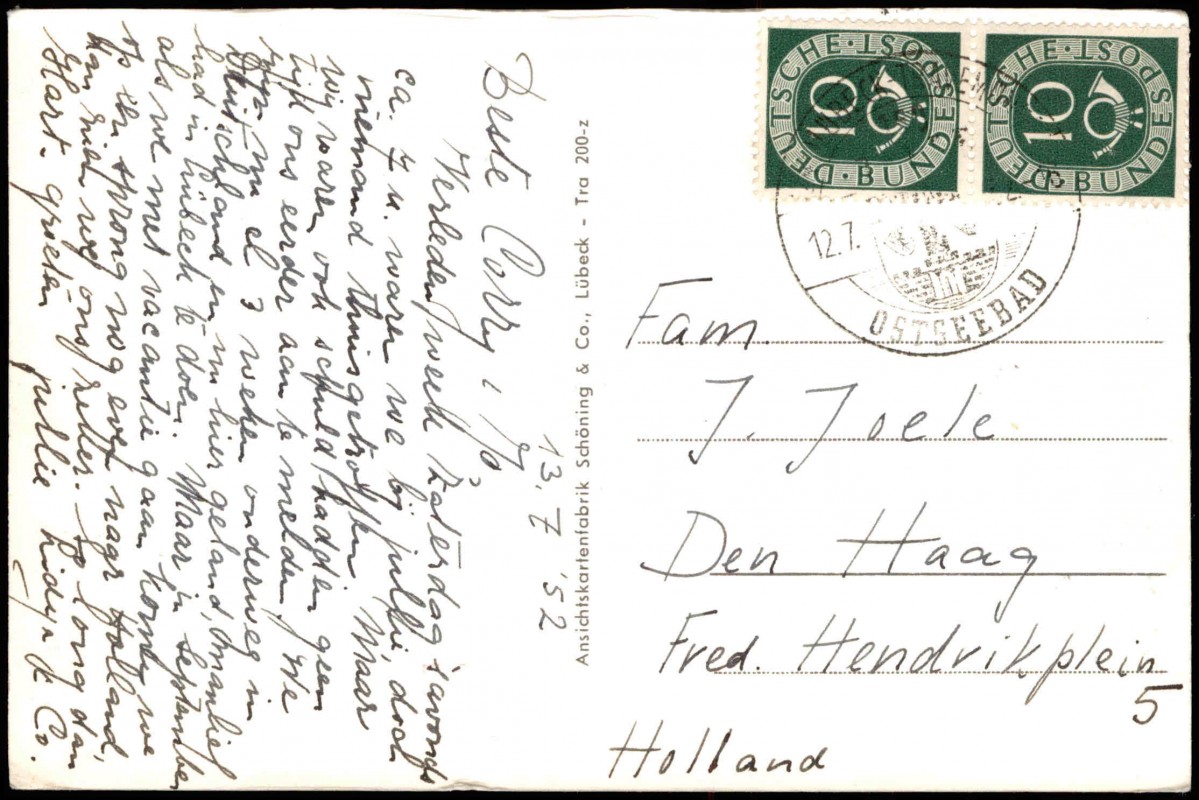 Beste Corry, Jo,
13.7 '52
Verleden week Zaterdag 's avonds
ca. 7 u. waren we bij jullie, doch
niemand thuisgetroffen. Maar
wij waren ook schuld, hadden geen
tijd ons eerder aan te melden. We
zijn nu al 3 weken onderweg in
Deutschland en nu hier geland,
had in Lübeck te doen. Maar in September
als we met vacantie gaan komen we
op een sprong nog even naar Holland,
dan zien we ons zeker. Zo long dan
Hart. groeten jullie Lidy & Co.
Ansichtskartenfabrik Schöning & Co., Lübeck - Tra 200-z
DEUTSCHE·BUNDESPOST
10
DEUTSCHE·BUNDESPOST
10
12.7.
OSTSEEBAD
Fam.
J. Joele
Den Haag
Fred. Hendrikplein
5
Holland